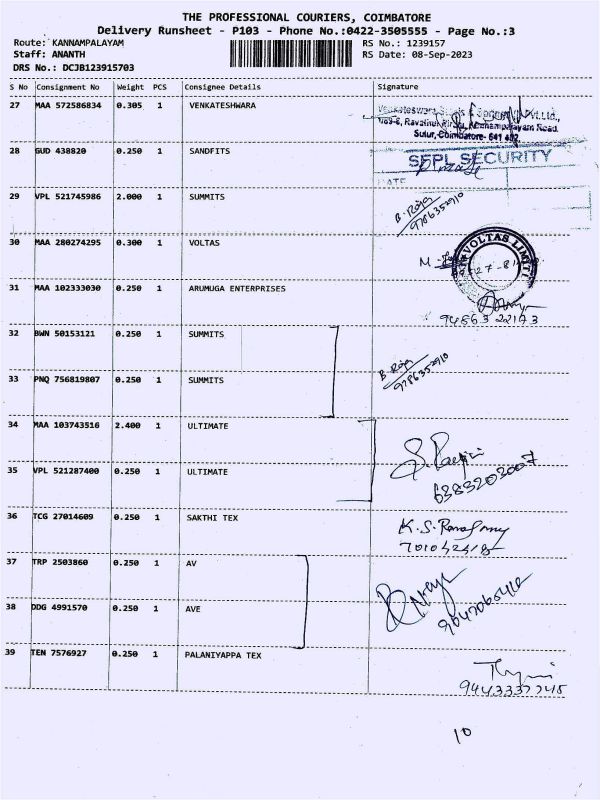 THE PROFESSIONAL COURIERS, COIMBATORE
Delivery Runsheet - P103 - Phone No.:0422-3505555 - Page No.:3
Route: KANNAMPALAYAM RS No.: 1239157
Staff: ANANTH RS Date: 08-Sep-2023
DRS No.: DCJB123915703
S No Consignment No Weight PCS Consignee Details Signature
27 MAA 572586834 0.305 1 VENKATESHWARA
Sulur, Coimbatore- 641 402.
28 GUD 438820 0.250 1 SANDFITS SFPL SECURITY
DATE
29 VPL 521745986 2.000 1 SUMMITS B. Raja
9786352910
30 MAA 280274295 0.300 1 VOLTAS VOLTAS LIMITED
31 MAA 102333030 0.250 1 ARUMUGA ENTERPRISES
94863 22173
32 BWN 50153121 0.250 1 SUMMITS
33 PNQ 756819807 0.250 1 SUMMITS B. Raja
9786352910
34 MAA 103743516 2.400 1 ULTIMATE
35 VPL 521287400 0.250 1 ULTIMATE 6383203007
36 TCG 27014609 0.250 1 SAKTHI TEX
37 TRP 2503860 0.250 1 AV
38 DDG 4991570 0.250 1 AVE
39 TEN 7576927 0.250 1 PALANIYAPPA TEX
10